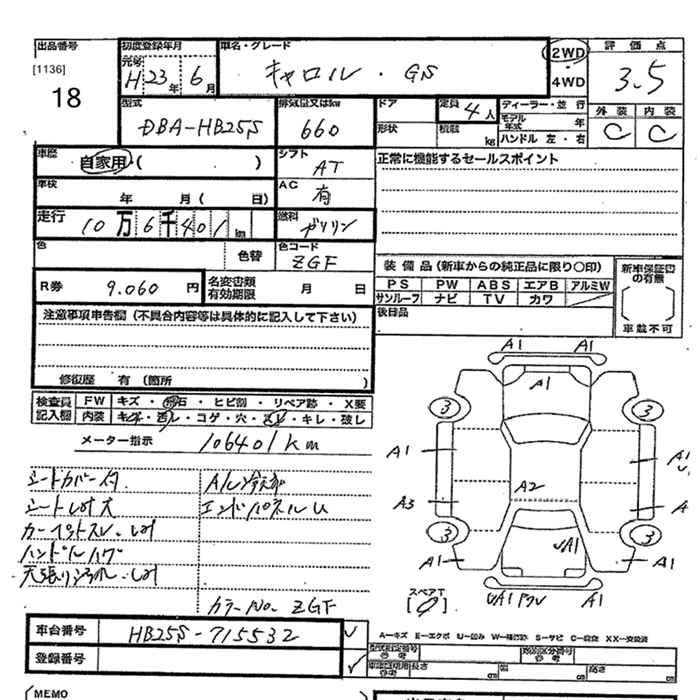 出品番号
[1136]
18
初度登録年月
元号
H 23 年 6 月
車名・グレード
キャロル・GS
2WD
・
4WD
評価点
3.5
外装 内装
C C
型式
DBA-HB25S
排気量又はkw
660
ドア
形状
定員 4 人
積載 kg
ディーラー・並行
モデル年式 年
ハンドル 左・右
車歴
自家用・( )
シフト
AT
正常に機能するセールスポイント
車検
年 月( 日)
AC
有
走行
10万6千401km
燃料
ガソリン
色
色替
色コード
ZGF
装備品(新車からの純正品に限り〇印)
PS PW ABS エアB アルミW
サンルーフ ナビ TV カワ
新車保証書の有無
車載不可
後日品
R券 9.060 円
名変書類有効期限 月 日
注意事項申告欄(不具合内容等は具体的に記入して下さい)
修復歴 有(箇所 )
検査員記入欄
FW キズ・飛石・ヒビ割・リペア跡・X要
内装 キズ・汚レ・コゲ・穴・スレ・キレ・破レ
メーター指示 106401km
シートカバー付
A/C冷却
ハンドルハゲ
カラーNo. ZGF
A1 A1
A1
3 3
A1 A1
A2
A3 A
3 3
A1 A1
UA1
スペアT
A1
車台番号 HB25S-715532
登録番号
A-キズ E-エクボ U-凹み W-補修跡 S-サビ C-腐食 XX-交換済
型式指定番号 参考
類別区分番号 参考
車庫証明用 参考
長さ cm
幅 cm
高さ cm
MEMO